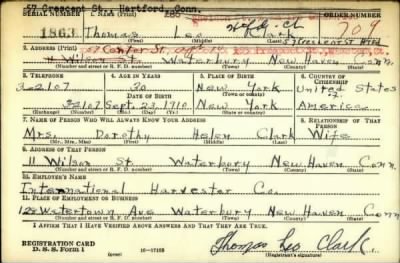 57 Crescent St. Hartford, Conn.
SERIAL NUMBER 1. NAME (Print) ORDER NUMBER
1863 Thomas Leo Clark 709
(First) (Middle) (Last)
2. ADDRESS (Print)
11 Wilson St. Waterbury New Haven Conn.
(Number and street or R. F. D. number) (Town) (County) (State)
3. TELEPHONE 4. AGE IN YEARS 5. PLACE OF BIRTH 6. COUNTRY OF CITIZENSHIP
3-2107 30 New York United States
DATE OF BIRTH (Town or county)
Sept. 23, 1910 New York America
(Mo.) (Day) (Yr.) (State or country)
7. NAME OF PERSON WHO WILL ALWAYS KNOW YOUR ADDRESS 8. RELATIONSHIP OF THAT PERSON
Mrs. Dorothy Helen Clark Wife
(Mr., Mrs., Miss) (First) (Middle) (Last)
9. ADDRESS OF THAT PERSON
11 Wilson St. Waterbury New Haven Conn.
(Number and street or R. F. D. number) (Town) (County) (State)
10. EMPLOYER'S NAME
International Harvester Co.
11. PLACE OF EMPLOYMENT OR BUSINESS
Watertown Ave Waterbury New Haven Conn
(Number and street or R. F. D. number) (Town) (County) (State)
I AFFIRM THAT I HAVE VERIFIED ABOVE ANSWERS AND THAT THEY ARE TRUE.
REGISTRATION CARD
D. S. S. Form 1 (over) 16-17105 Thomas Leo Clark
(Registrant's signature)